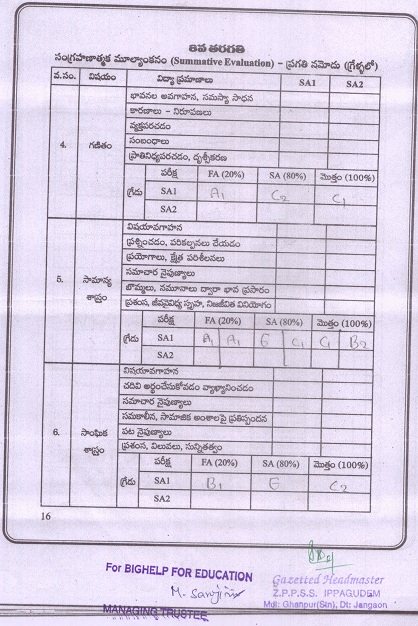 తివ తరగతి
సంగ్రహణాత్మక మూల్యాంకనం (Summative Evaluation) – ప్రగతి నమోదు (గ్రేళ్ళలో)
వ.సం. విషయం విద్యా ప్రమాణాలు SA1 SA2
భావనల అవగాహన, సమస్యా సాధన
కారణాలు – నిరూపణలు
వ్యక్తపరచడం
4. గణితం సంబంధాలు
ప్రాతినిధ్యపరచడం, దృశ్యీకరణ
పరీక్ష FA (20%) SA (80%) మొత్తం (100%)
గ్రేడు SA1 A1 C2 C1
SA2
విషయావగాహన
ప్రశ్నించడం, పరికల్పనలు చేయడం
ప్రయోగాలు, క్షేత్ర పరిశీలనలు
5. సామాన్య శాస్త్రం సమాచార నైపుణ్యాలు
బొమ్మలు, నమూనాలు ద్వారా భావ ప్రసారం
ప్రశంస, జీవవైవిధ్య స్పృహ, నిజజీవిత వినియోగం
పరీక్ష FA (20%) SA (80%) మొత్తం (100%)
గ్రేడు SA1 A1 A1 E C1 C1 B2
SA2
విషయావగాహన
చదివి అర్థంచేసుకోవడం వ్యాఖ్యానించడం
సమాచార నైపుణ్యాలు
సమకాలీన, సామాజిక అంశాలపై ప్రతిస్పందన
6. సాంఘిక శాస్త్రం పట నైపుణ్యాలు
ప్రశంస, విలువలు, సున్నితత్వం
పరీక్ష FA (20%) SA (80%) మొత్తం (100%)
గ్రేడు SA1 B1 E C2
SA2
16
For BIGHELP FOR EDUCATION
M. Sarojini
MANAGING TRUSTEE
Gazetted Headmaster
Z.P.P.S.S. IPPAGUDEM
Mdl: Ghanpur(Stn), Dt: Jangaon